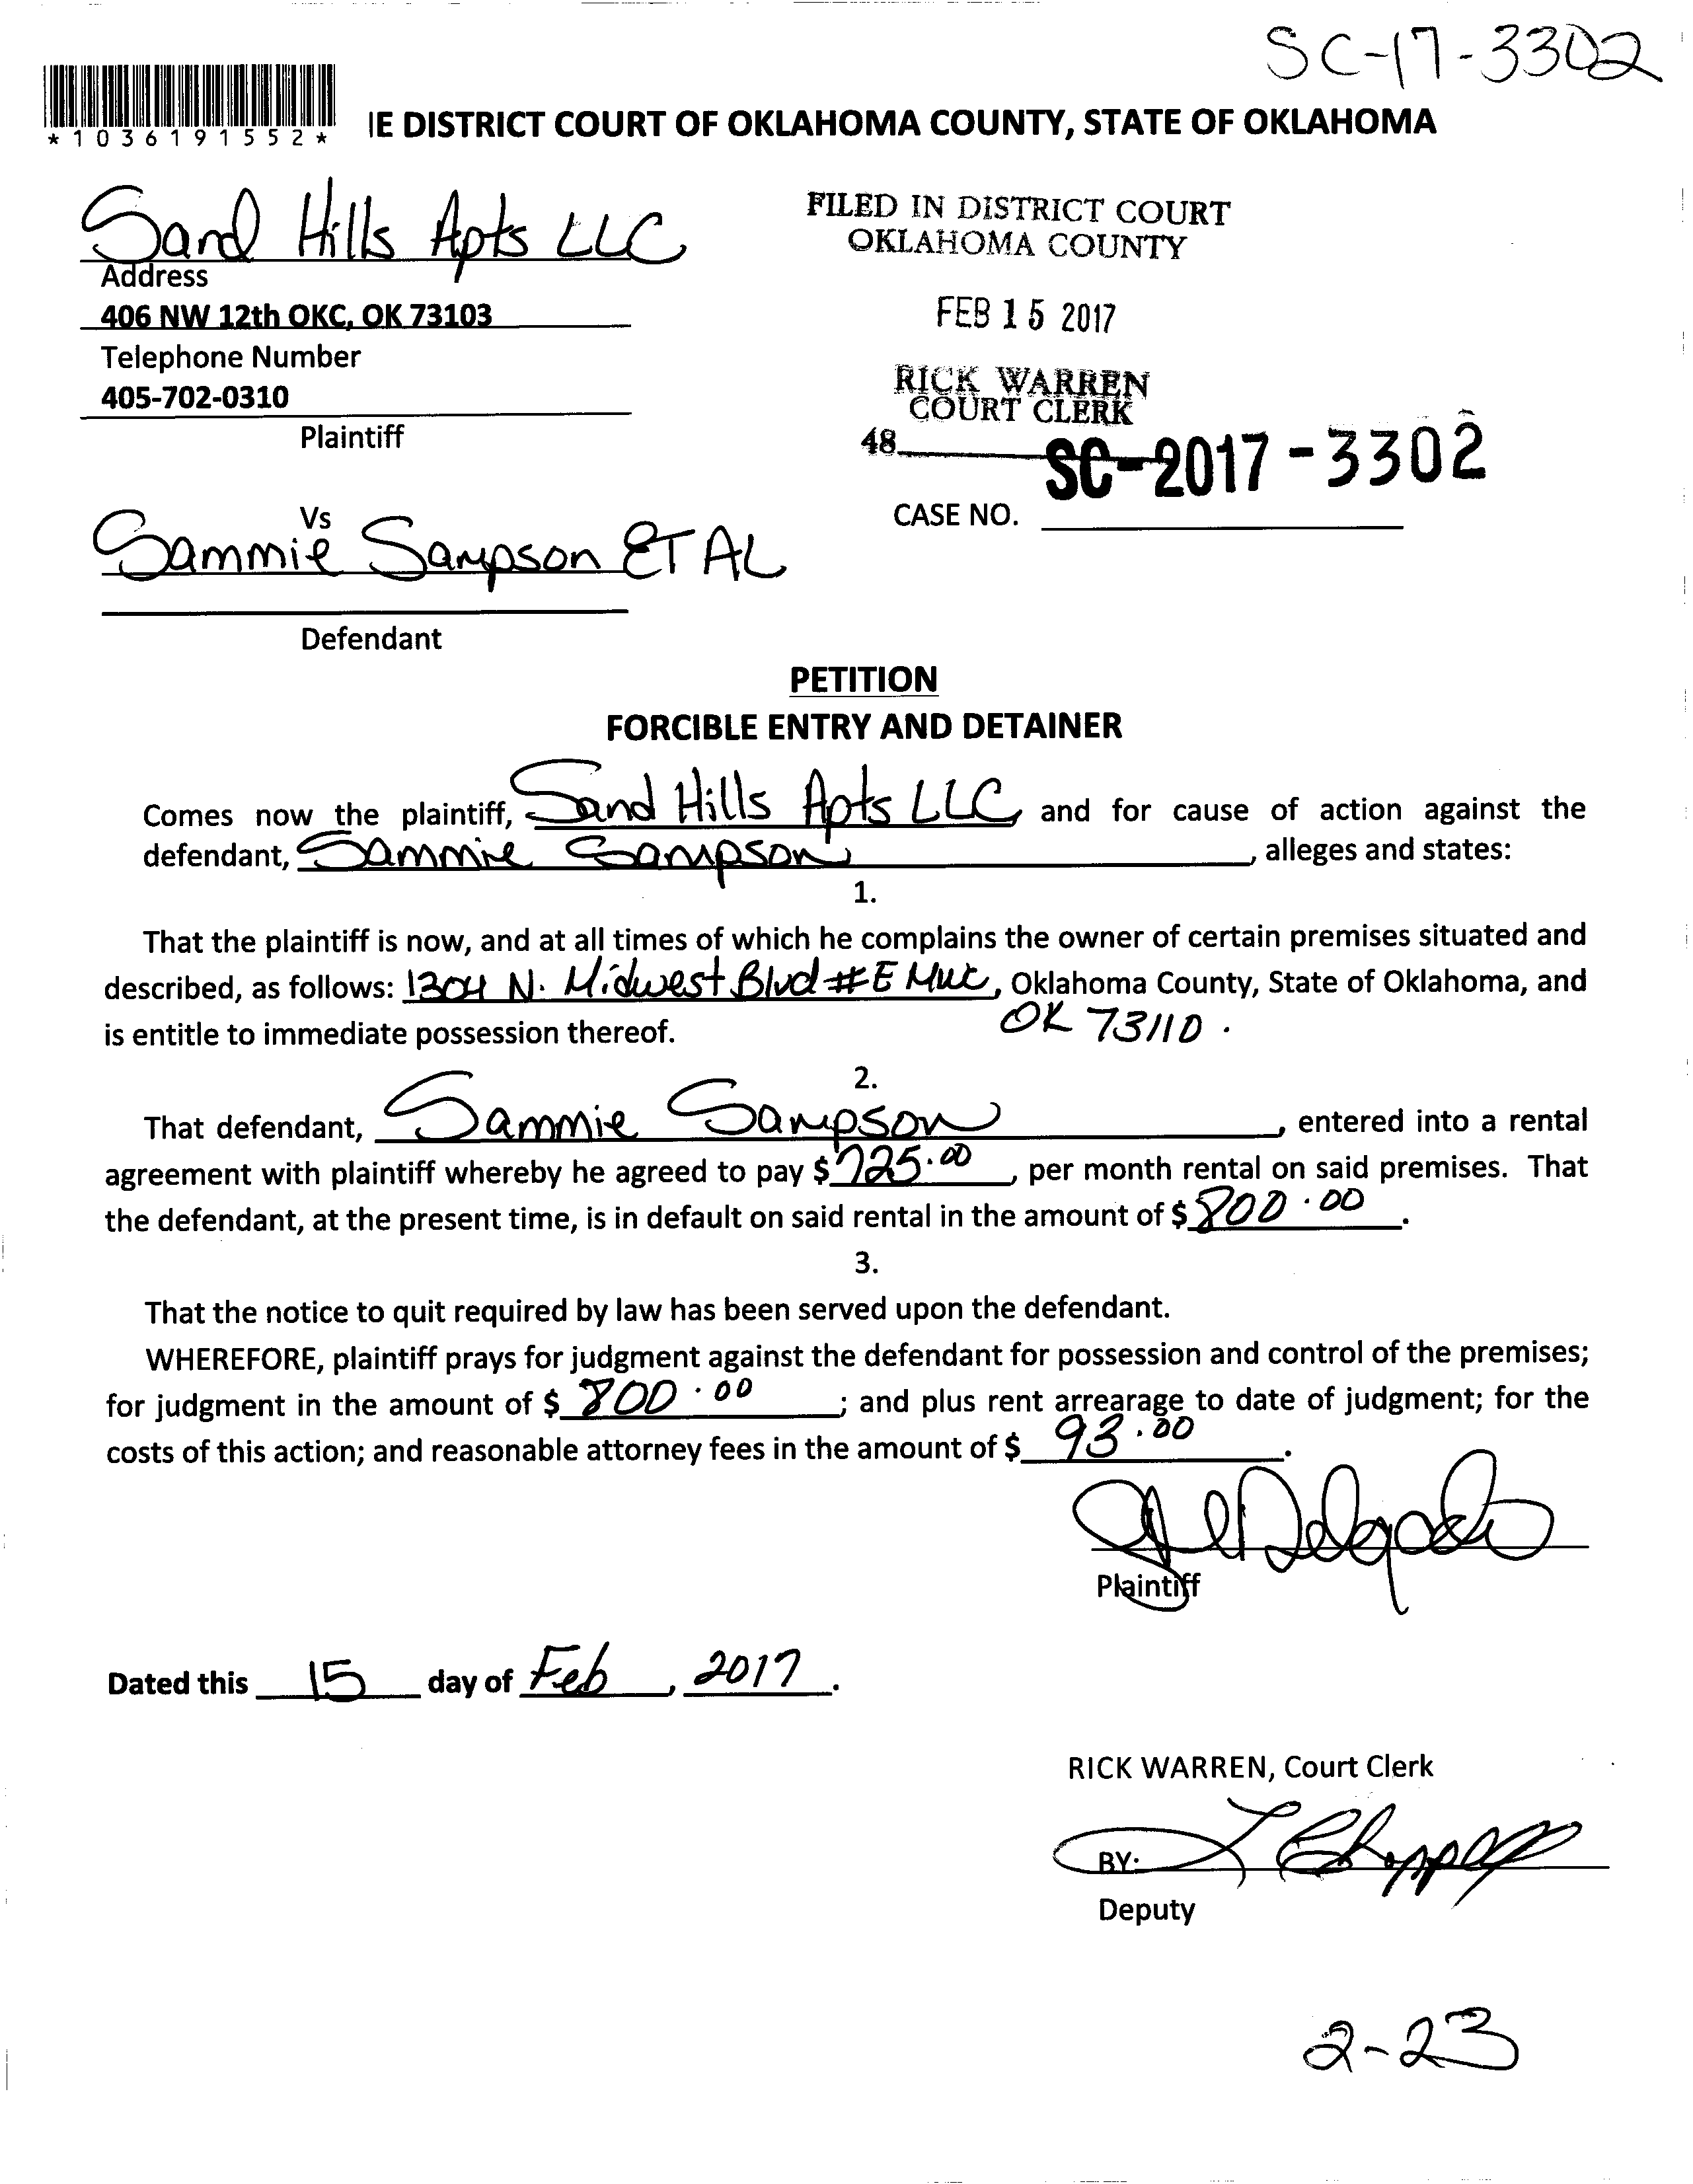 SC-17-3302
*1036191552*
IE DISTRICT COURT OF OKLAHOMA COUNTY, STATE OF OKLAHOMA
Sand Hills Apts LLC
Address
406 NW 12th OKC, OK 73103
Telephone Number
405-702-0310
Plaintiff
FILED IN DISTRICT COURT
OKLAHOMA COUNTY
FEB 15 2017
RICK WARREN
COURT CLERK
48
SC-2017-3302
CASE NO.
Vs
Sammie Sampson ET AL
Defendant
PETITION
FORCIBLE ENTRY AND DETAINER
Comes now the plaintiff, Sand Hills Apts LLC and for cause of action against the
defendant, Sammie Sampson, alleges and states:
1.
That the plaintiff is now, and at all times of which he complains the owner of certain premises situated and
described, as follows: 1304 N. Midwest Blvd #E MWC, Oklahoma County, State of Oklahoma, and
OK 73110.
is entitle to immediate possession thereof.
2.
That defendant, Sammie Sampson, entered into a rental
agreement with plaintiff whereby he agreed to pay $ 725.00, per month rental on said premises. That
the defendant, at the present time, is in default on said rental in the amount of $ 800.00.
3.
That the notice to quit required by law has been served upon the defendant.
WHEREFORE, plaintiff prays for judgment against the defendant for possession and control of the premises;
for judgment in the amount of $ 800.00; and plus rent arrearage to date of judgment; for the
costs of this action; and reasonable attorney fees in the amount of $ 93.00.
Delgado
Plaintiff
Dated this 15 day of Feb, 2017.
RICK WARREN, Court Clerk
BY:
Deputy
2-23